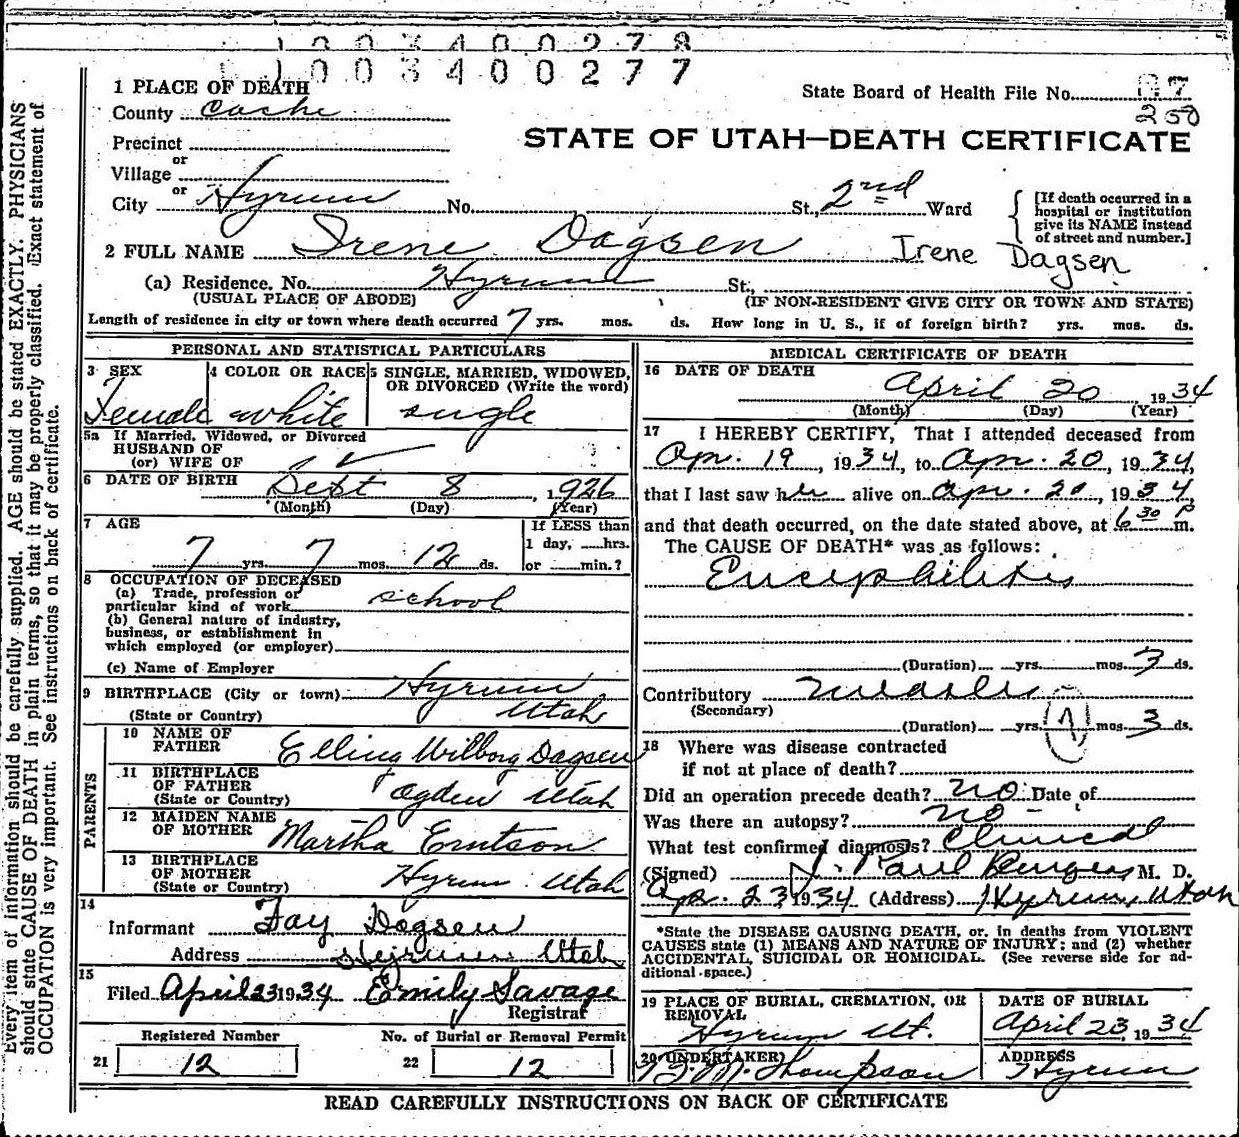 1003400278
1003400277
1 PLACE OF DEATH
County Cache
State Board of Health File No. 87
200
STATE OF UTAH—DEATH CERTIFICATE
Precinct
or
Village
or
City Hyrum No. St., 2nd Ward
[If death occurred in a hospital or institution give its NAME instead of street and number.]
2 FULL NAME Irene Dagsen Irene Dagsen
(a) Residence. No. Hyrum St.,
(USUAL PLACE OF ABODE) (IF NON-RESIDENT GIVE CITY OR TOWN AND STATE)
Length of residence in city or town where death occurred 7 yrs. mos. ds. How long in U. S., if of foreign birth? yrs. mos. ds.
PERSONAL AND STATISTICAL PARTICULARS
3 SEX 4 COLOR OR RACE 5 SINGLE, MARRIED, WIDOWED, OR DIVORCED (Write the word)
Female white single
5a If Married, Widowed, or Divorced
HUSBAND OF
(or) WIFE OF
6 DATE OF BIRTH Sept 8, 1926
(Month) (Day) (Year)
7 AGE If LESS than
1 day, hrs.
7 yrs. 7 mos. 12 ds. or min.?
8 OCCUPATION OF DECEASED
(a) Trade, profession or
particular kind of work school
(b) General nature of industry,
business, or establishment in
which employed (or employer)
(c) Name of Employer
9 BIRTHPLACE (City or town) Hyrum,
(State or Country) Utah
PARENTS
10 NAME OF
FATHER Elling Wilborg Dagsen
11 BIRTHPLACE
OF FATHER
(State or Country) Ogden Utah
12 MAIDEN NAME
OF MOTHER Martha Erntson
13 BIRTHPLACE
OF MOTHER
(State or Country) Hyrum Utah
14
Informant Fay Dagsen
Address Hyrum Utah
15
Filed April 23 1934 Emily Savage
Registrar
Registered Number No. of Burial or Removal Permit
21 12 22 12
MEDICAL CERTIFICATE OF DEATH
16 DATE OF DEATH
April 20, 1934
(Month) (Day) (Year)
17 I HEREBY CERTIFY, That I attended deceased from
Apr. 19, 1934, to Apr. 20, 1934,
that I last saw her alive on Apr. 20, 1934,
and that death occurred, on the date stated above, at 6 30 P m.
The CAUSE OF DEATH* was as follows:
Enciphilitis
(Duration) yrs. mos. 3 ds.
Contributory Measles
(Secondary)
(Duration) yrs. mos. 3 ds.
18 Where was disease contracted
if not at place of death?
Did an operation precede death? no Date of
Was there an autopsy? no
What test confirmed diagnosis? Clinical
(Signed) J. Paul Burgess M. D.
Apr. 23 1934 (Address) Hyrum, Utah
*State the DISEASE CAUSING DEATH, or, in deaths from VIOLENT
CAUSES state (1) MEANS AND NATURE OF INJURY; and (2) whether
ACCIDENTAL, SUICIDAL OR HOMICIDAL. (See reverse side for ad-
ditional space.)
19 PLACE OF BURIAL, CREMATION, OR REMOVAL DATE OF BURIAL
Hyrum Ut. April 23, 1934
20 UNDERTAKER ADDRESS
Thompson Hyrum
READ CAREFULLY INSTRUCTIONS ON BACK OF CERTIFICATE
Every item of information should be carefully supplied. AGE should be stated EXACTLY. PHYSICIANS
should state CAUSE OF DEATH in plain terms, so that it may be properly classified. Exact statement of
OCCUPATION is very important. See instructions on back of certificate.